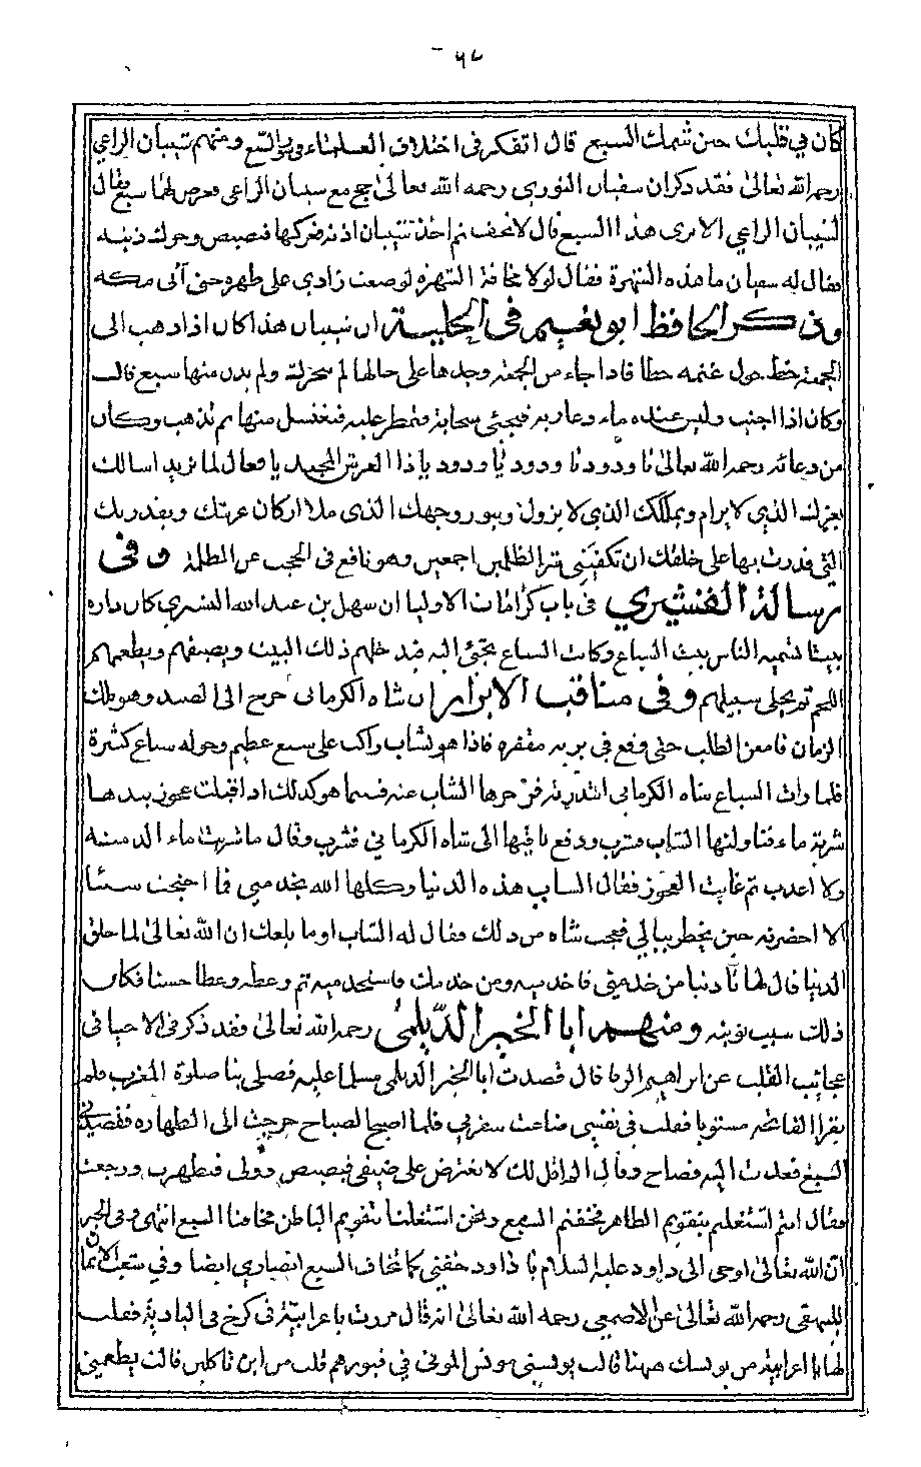 ٦٨
كان في قلبك حين شمك السبع قال اتفكر في اختلاف العلماء في سؤر السبع ومنهم شيبان الراعي
رحمه الله تعالى فقد ذكر ان سفيان الثوري رحمه الله تعالى حج مع شيبان الراعي فعرض لهما سبع فقال
لشيبان الراعي الا ترى هذا السبع قال لا تخف ثم اخذ شيبان اذنه فعركها فبصبص وحرك ذنبه
فقال له سفيان ما هذه الشهرة فقال لولا مخافة الشهره لوضعت زادي على ظهره حتى آتي مكه
وذكر الحافظ ابو نعيم في الحلية ان شيبان هذا كان اذا ذهب الى
الجمعة خط حول غنمه خطا فاذا جاء من الجمعه وجدها على حالها لم تتحرك ولم يدن منها سبع قال
وكان اذا اجنب وليس عنده ماء دعا ربه فتجئ سحابة فتمطر عليه فيغتسل منها ثم تذهب وكان
من دعائه رحمه الله تعالى يا ودود يا ودود يا ودود يا ذا العرش المجيد يا فعال لما تريد اسالك
بعزك الذي لا يرام وبملكك الذي لا يزول وبنور وجهك الذي ملا اركان عرشك وبقدرتك
التي قدرت بها على خلقك ان تكفيني شر الظلمين اجمعين وهو نافع في الحجب عن الظلمة وفي
رسالة القشيري في باب كرامات الاوليا ان سهل بن عبد الله التستري كان داره
بيتا تسميه الناس بيت السباع وكانت السباع تجئ اليه فيدخلهم ذلك البيت ويضيفهم ويطعمهم
اللحم ثم يخلي سبيلهم وفي مناقب الابرار ان شاه الكرماني خرج الى الصيد وهو ملك
الزمان فامعن الطلب حتى وقع في بريه مقفره فاذا هو بشاب راكب على سبع عظيم وحوله سباع كثيرة
فلما رات السباع شاه الكرماني ابتدرته فزجرها الشاب عنه فبينما هو كذلك اذ اقبلت عجوز بيدها
شربة ماء فناولتها الشاب فشرب ودفع باقيها الى شاه الكرماني فشرب وقال ما شربت ماء الذ منه
ولا اعذب ثم غابت العجوز فقال الشاب هذه الدنيا وكلها الله بخدمتي فما احتجت شيئا
الا احضرته حين يخطر ببالي فعجب شاه من ذلك فقال له الشاب اوما بلغك ان الله تعالى لما خلق
الدنيا قال لها يا دنيا من خدمني فاخدميه ومن خدمك فاستخدميه ثم وعظه وعظا حسنا فكان
ذلك سبب توبته ومنهم ابا الخير الديلمي رحمه الله تعالى فقد ذكر في الاحيا في
عجائب القلب عن ابراهيم الرقا قال قصدت ابا الخير الديلمي مسلما عليه فصلى بنا صلوة المغرب فلم
يقرا الفاتحه مستويا فقلت في نفسي ضاعت سفرتي فلما اصبح الصباح خرجت الى الطهاره فقصدني
السبع فعدت اليه فصاح وقال الم اقل لك لا تعترض على ضيفي فبصبص وولى فتطهرت ورجعت
فقال انتم اشتغلتم بتقويم الظاهر فخفتم السبع ونحن اشتغلنا بتقويم الباطن فخافنا السبع انتهى وفي الخبر
ان الله تعالى اوحى الى داود عليه السلام يا داود خفني كما تخاف السبع الضاري ايضا وفي شعب الايمان
للبيهقي رحمه الله تعالى عن الاصمعي رحمه الله تعالى انه قال مررت باعرابية في كرخ في البادية فقلت
لها يا اعرابية من يونسك ههنا قالت يونسني مونس الموتى في قبورهم قلت من اين تاكلين قالت يطعمني